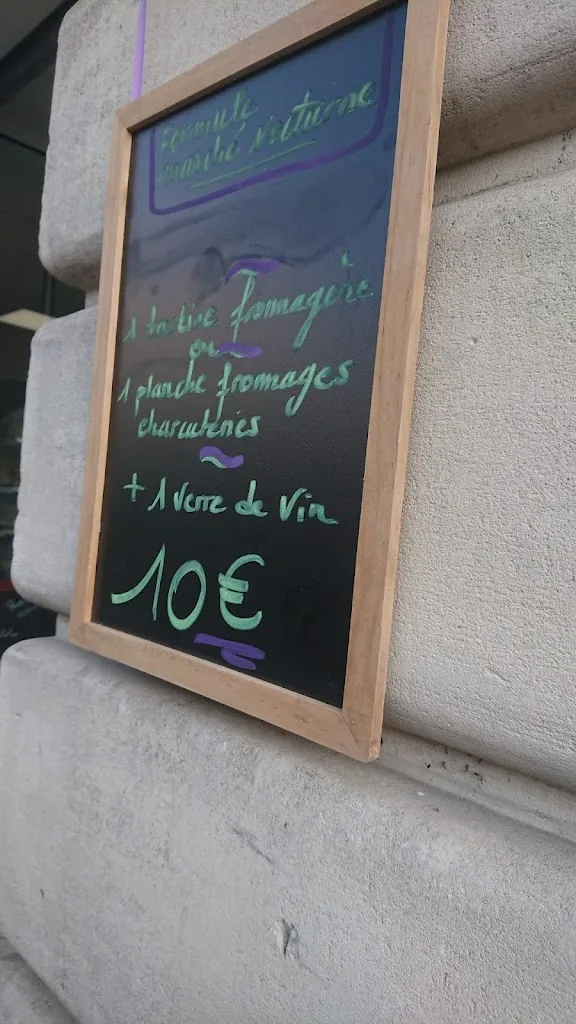 Formule
marché Nocturne
1 tartine fromagère
ou
1 planche fromages
charcuteries
+ 1 verre de vin
10€